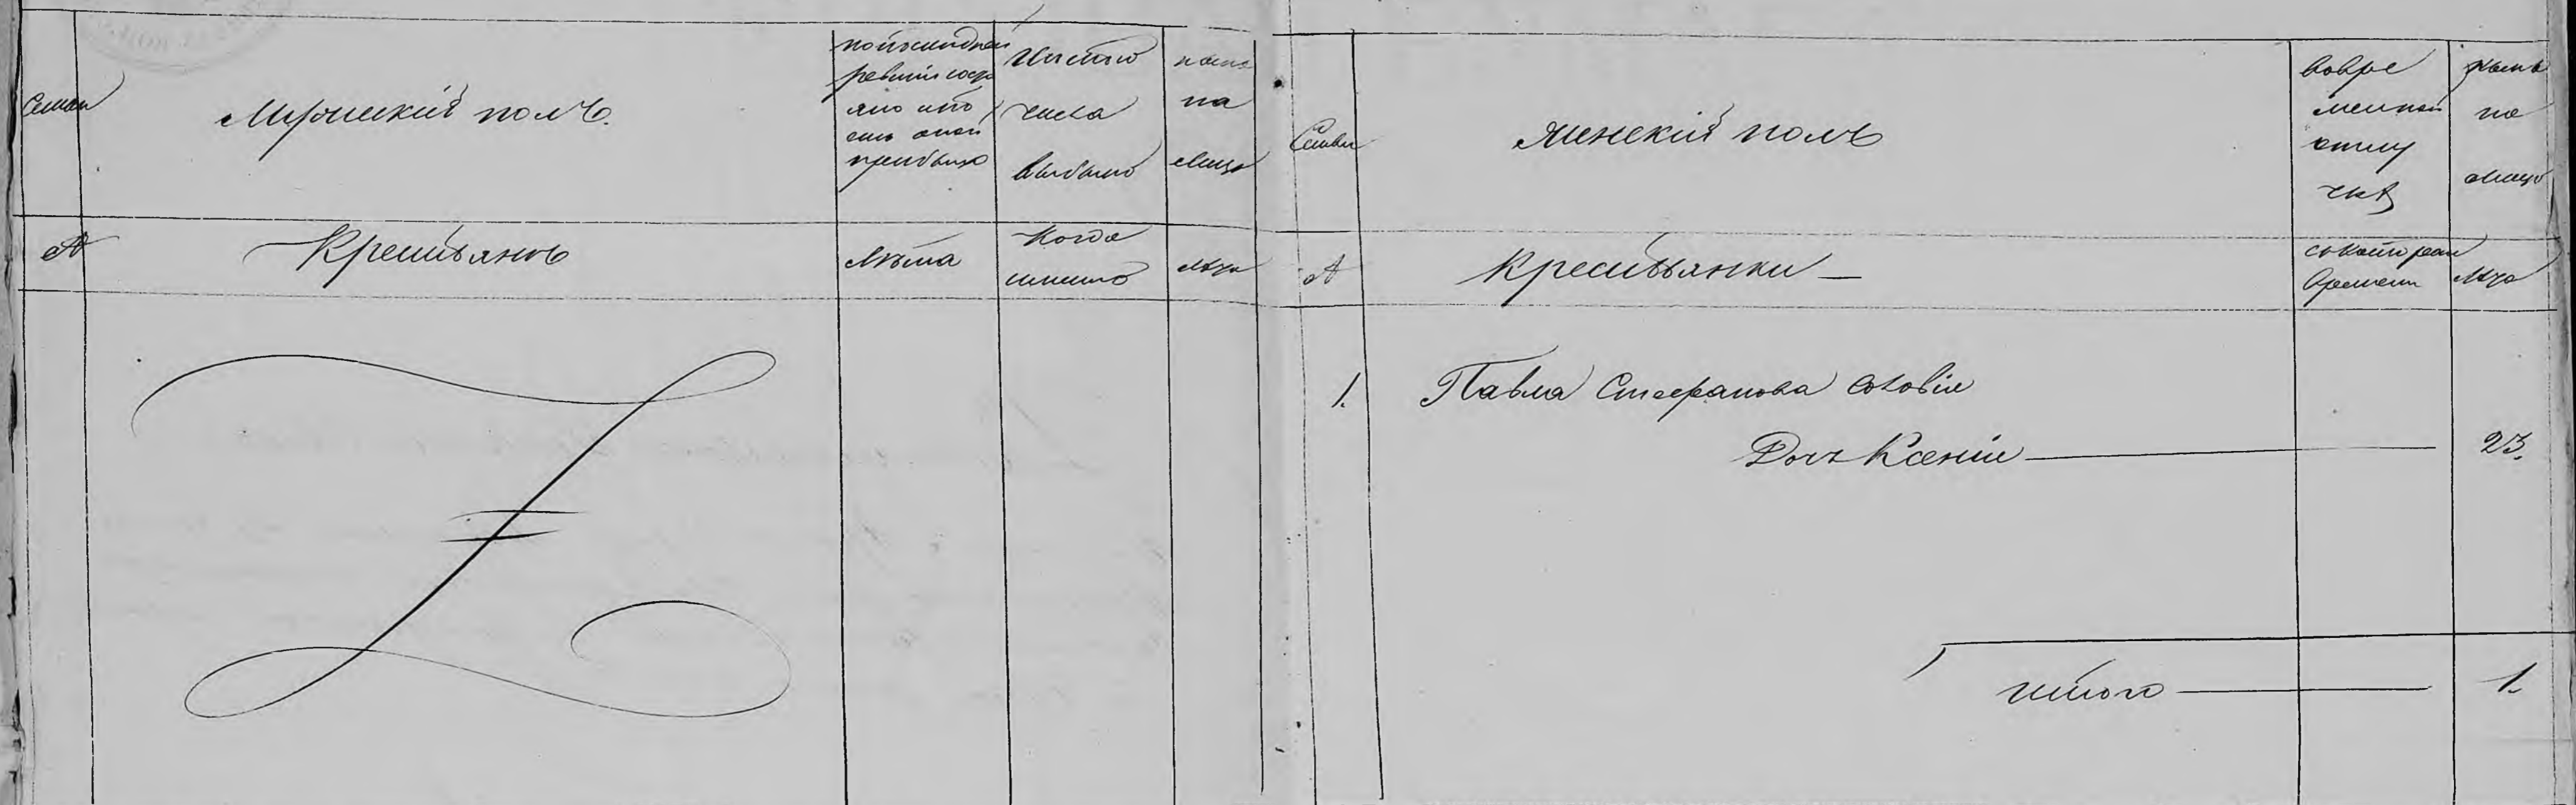 Семьи
Мужескій полъ.
по последней
ревизіи состо
яло или
после оной
прибыло
Изъ того
числа
выбыло
ныне
на
лицо
№
Крестьяне
лѣта
когда
именно
лѣта
Семьи
Женскій полъ
во вре
менной
отлу
чкѣ
ныне
на
лицо
№
Крестьянки —
съ котораго
времени
лѣта
1.
Павла Стефанова
Дочь Ксенія
23.
Итого
1.